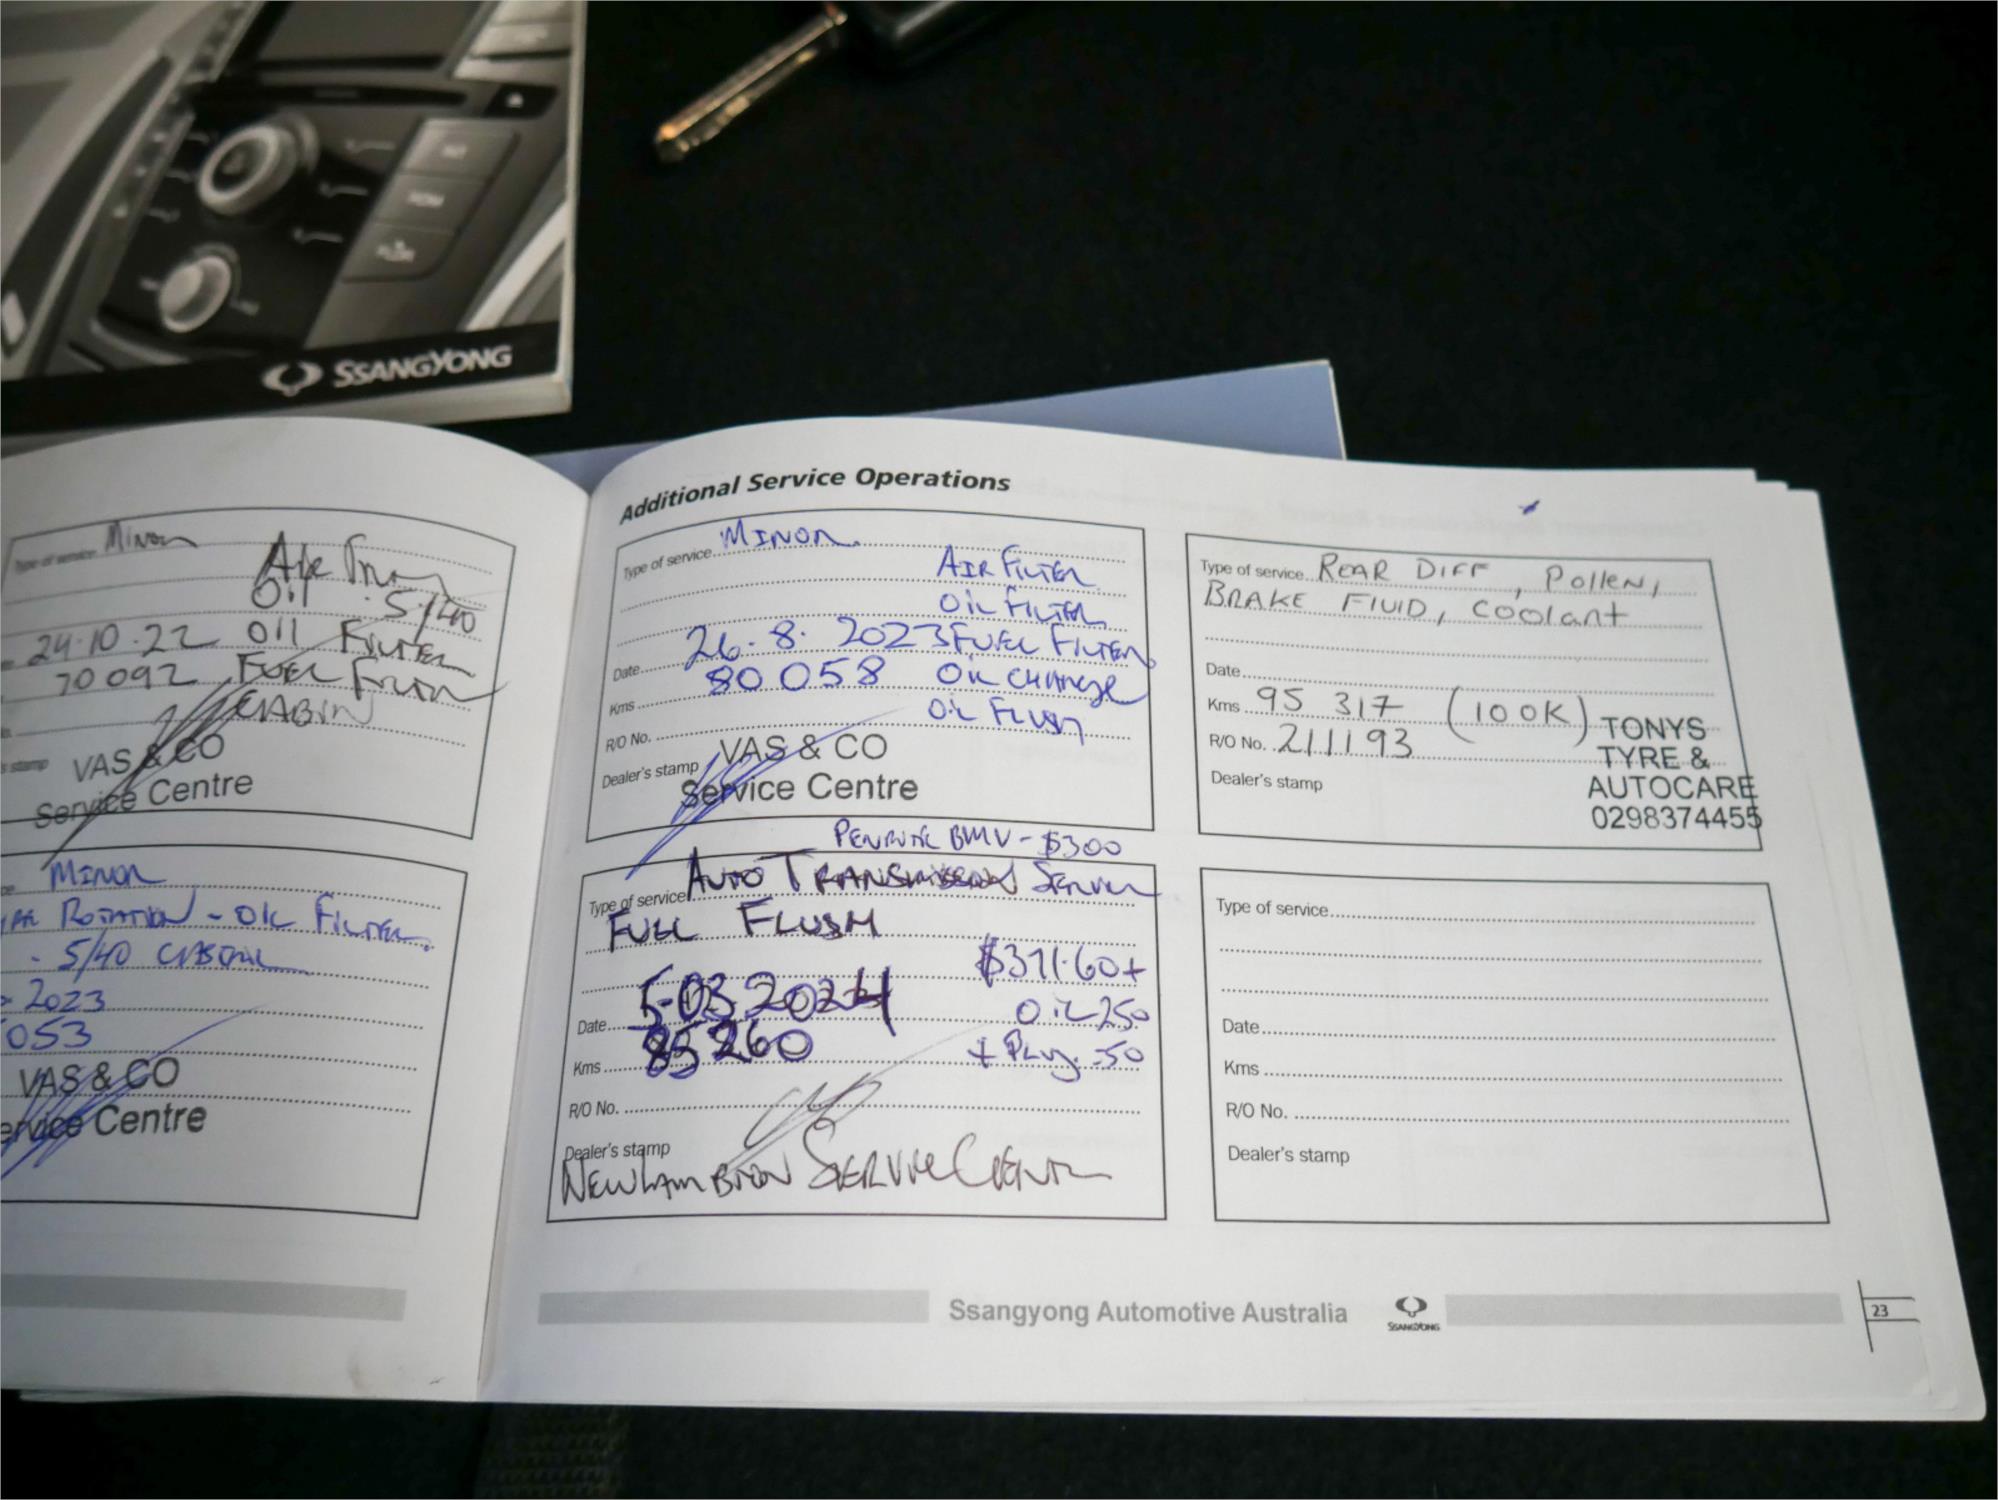 SSANGYONG
Type of service Minor
Oil 5/40
24.10.22 Oil Filter
70092 Fuel Filter
CABIN
VAS & CO
Service Centre
Minor
Rotation - Oil Filter.
- 5/40
2023
053
VAS & CO
Service Centre
Additional Service Operations
Type of service MINOR
AIR FILTER
OIL FILTER
Date 26.8.2023 FUEL FILTER
Kms 80058 OIL CHANGE
R/O No. OIL FLUSH
Dealer's stamp VAS & CO
Service Centre
PENRITE BMV - $300
Type of service AUTO TRANSMISSION SERVICE
FULL FLUSH
$371.60+
Date 5-03.2024 OIL 250
Kms 85260 + Plug. 50
R/O No.
Dealer's stamp
NEW LAMBTON SERVICE CENTRE
Type of service REAR DIFF, Pollen,
BRAKE FLUID, COOLANT
Date
Kms 95 317 (100K)
R/O No. 211193
Dealer's stamp
TONYS
TYRE &
AUTOCARE
0298374455
Type of service
Date
Kms
R/O No.
Dealer's stamp
Ssangyong Automotive Australia
SSANGYONG
23